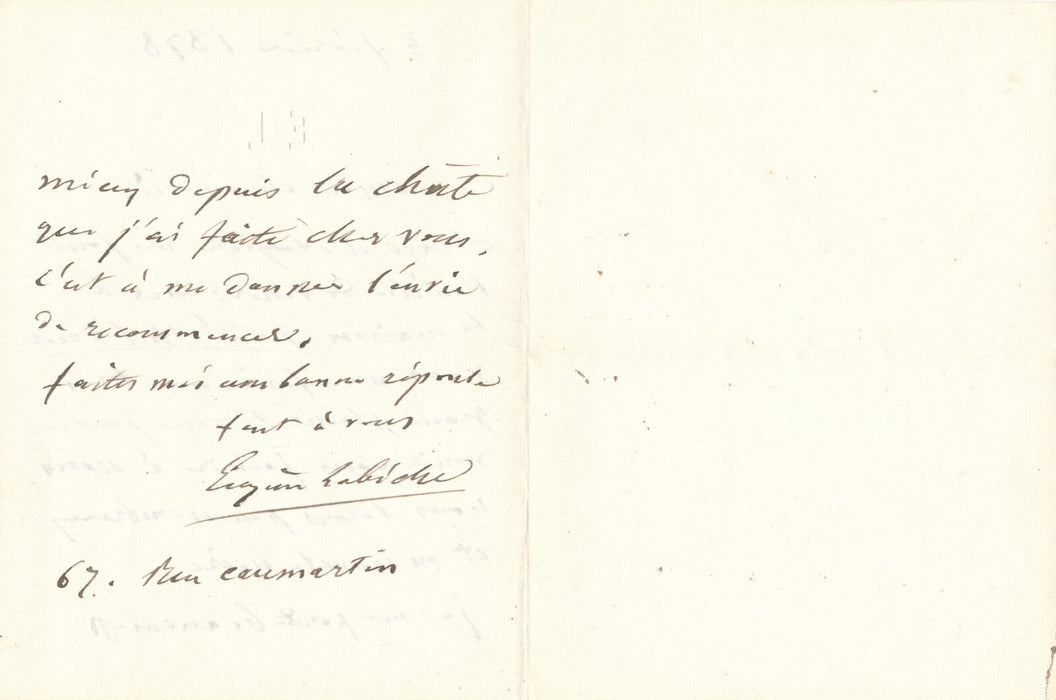 mieux depuis la chute
que j'ai faite chez vous,
c'est à me donner l'envie
de recommencer.
faites moi une bonne réponse
tout à vous
Eugène Labiche
67. Rue caumartin